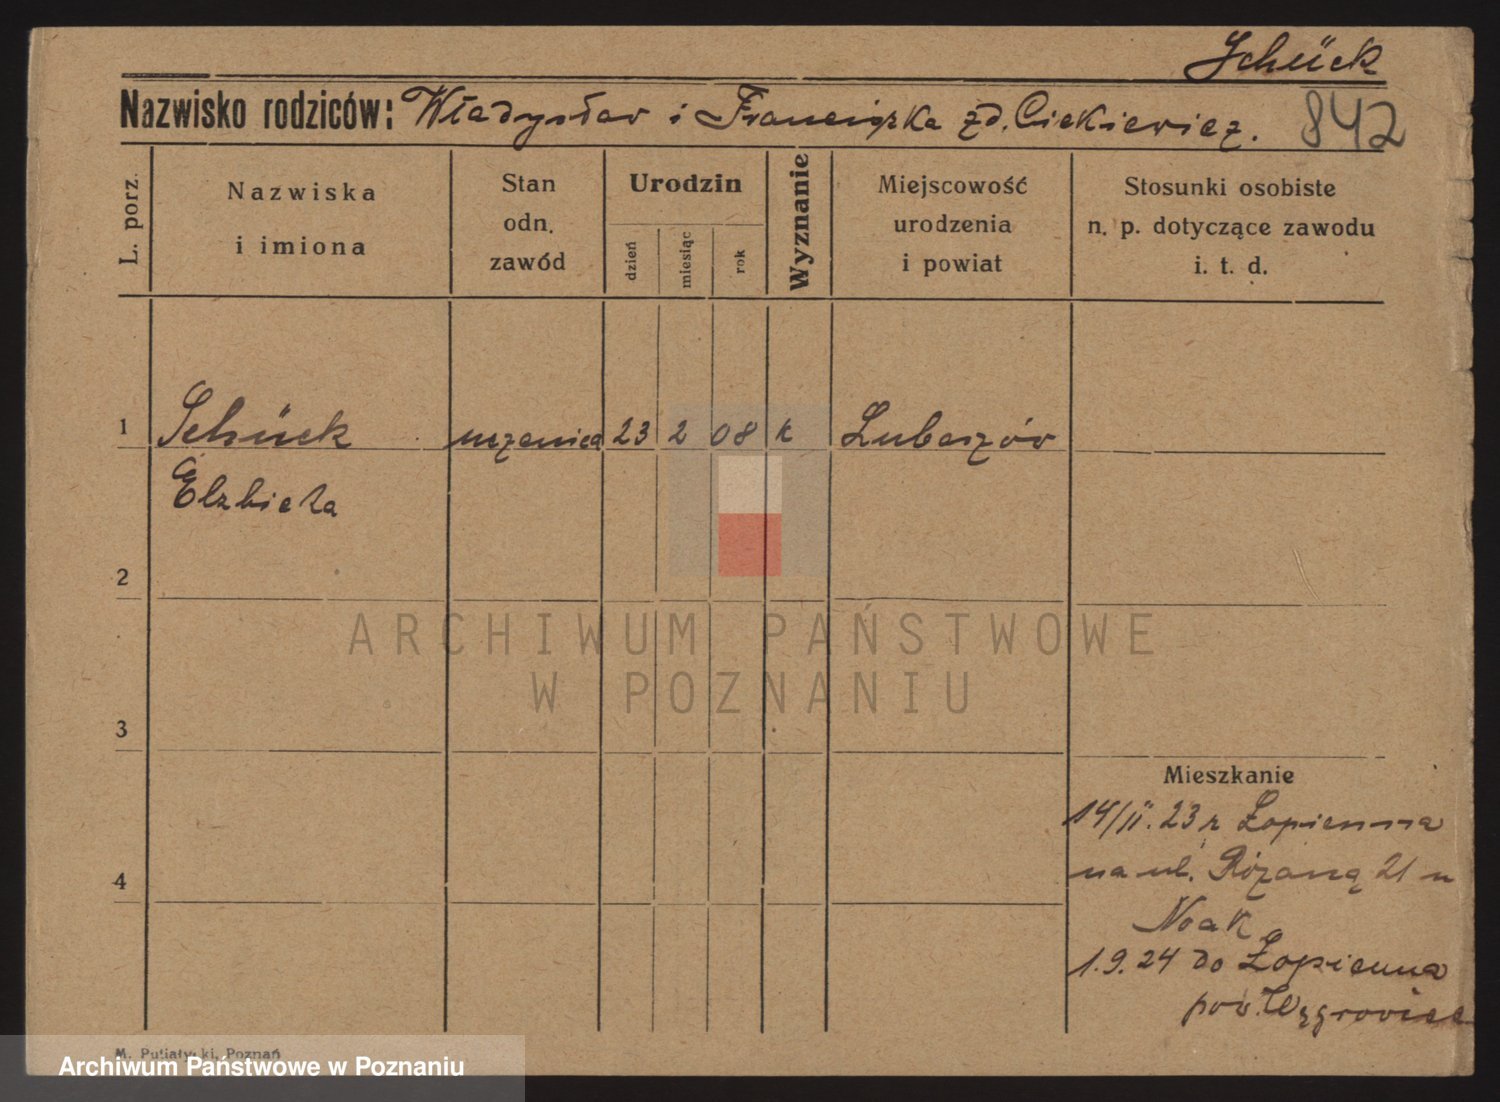 Schück
Nazwisko rodziców: Władysław i Franciszka zd. Ciekiewicz.
842
L. porz.
Nazwiska
i imiona
Stan
odn.
zawód
Urodzin
dzień
miesiąc
rok
Wyznanie
Miejscowość
urodzenia
i powiat
Stosunki osobiste
n. p. dotyczące zawodu
i. t. d.
1 Schück uczenica 23 2 08 k Lubaszów
Elzbieta
2
ARCHIWUM PAŃSTWOWE
W POZNANIU
3
Mieszkanie
14/II. 23 z Łopienna
4
na ul. Różaną 21 u
Noak
1.9.24 do Łopienna
pow. Wągrowiec
M. Putiatycki, Poznań
Archiwum Państwowe w Poznaniu